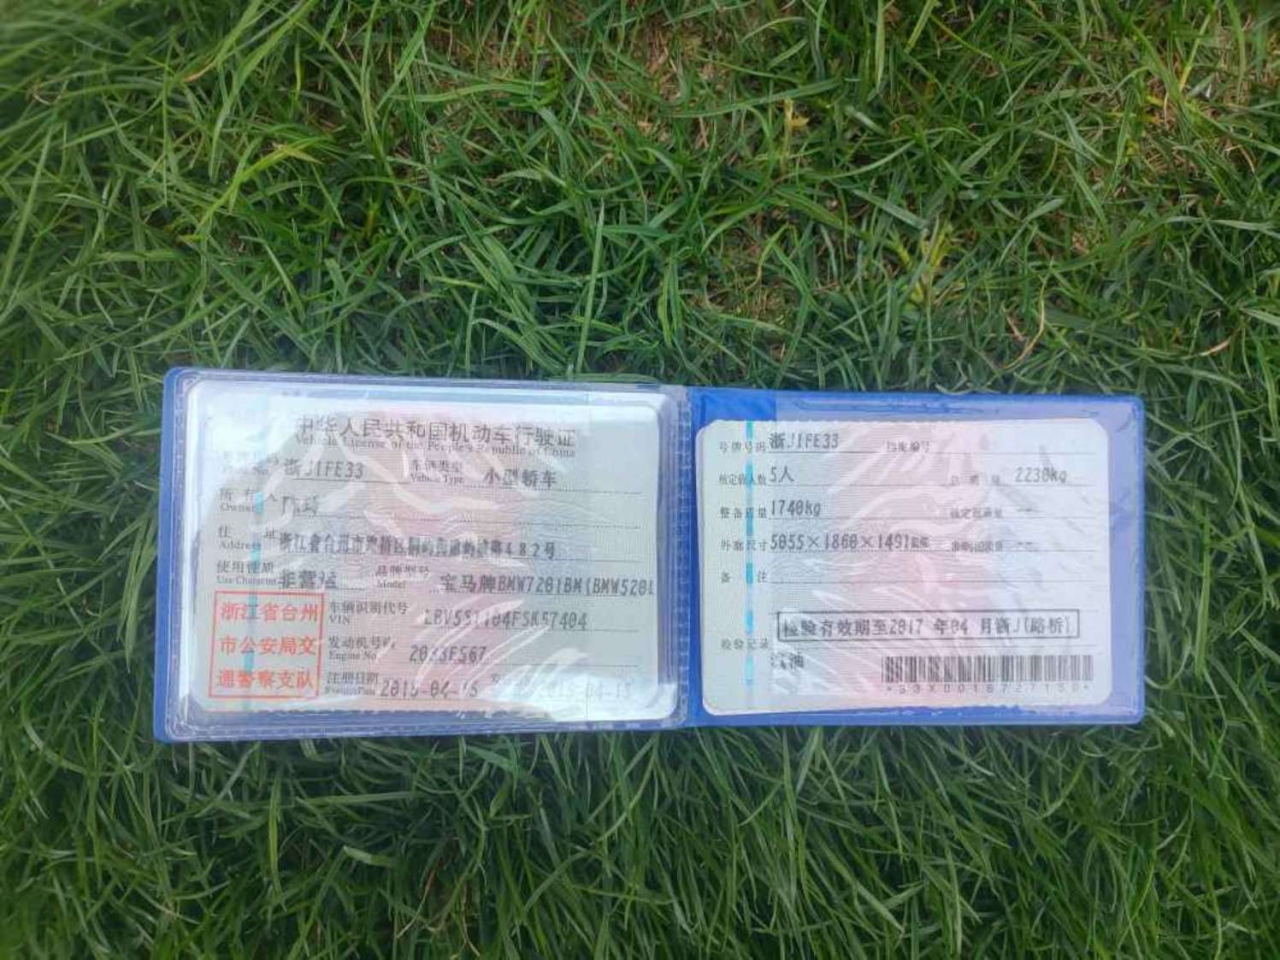 中华人民共和国机动车行驶证
Vehicle License of the People's Republic of China
号牌号码 浙J1FE33 车辆类型 Vehicle Type 小型轿车
所有人 Owner
住址 Address 浙江省台州市路桥区 482号
使用性质 Use Character 非营运 品牌型号 Model 宝马牌BMW7201BM(BMW520i
浙江省台州
市公安局交
通警察支队
车辆识别代号 VIN
发动机号码 Engine No.
注册日期 2015-04-15 2015-04-15
号牌号码 浙J1FE33 档案编号
核定载人数 5人 总质量 2230kg
整备质量 1740kg 核定载质量 --
外廓尺寸 5055×1860×1491毫米 --
备注
检验有效期至2017年04月浙J(路桥)
检验记录
汽油